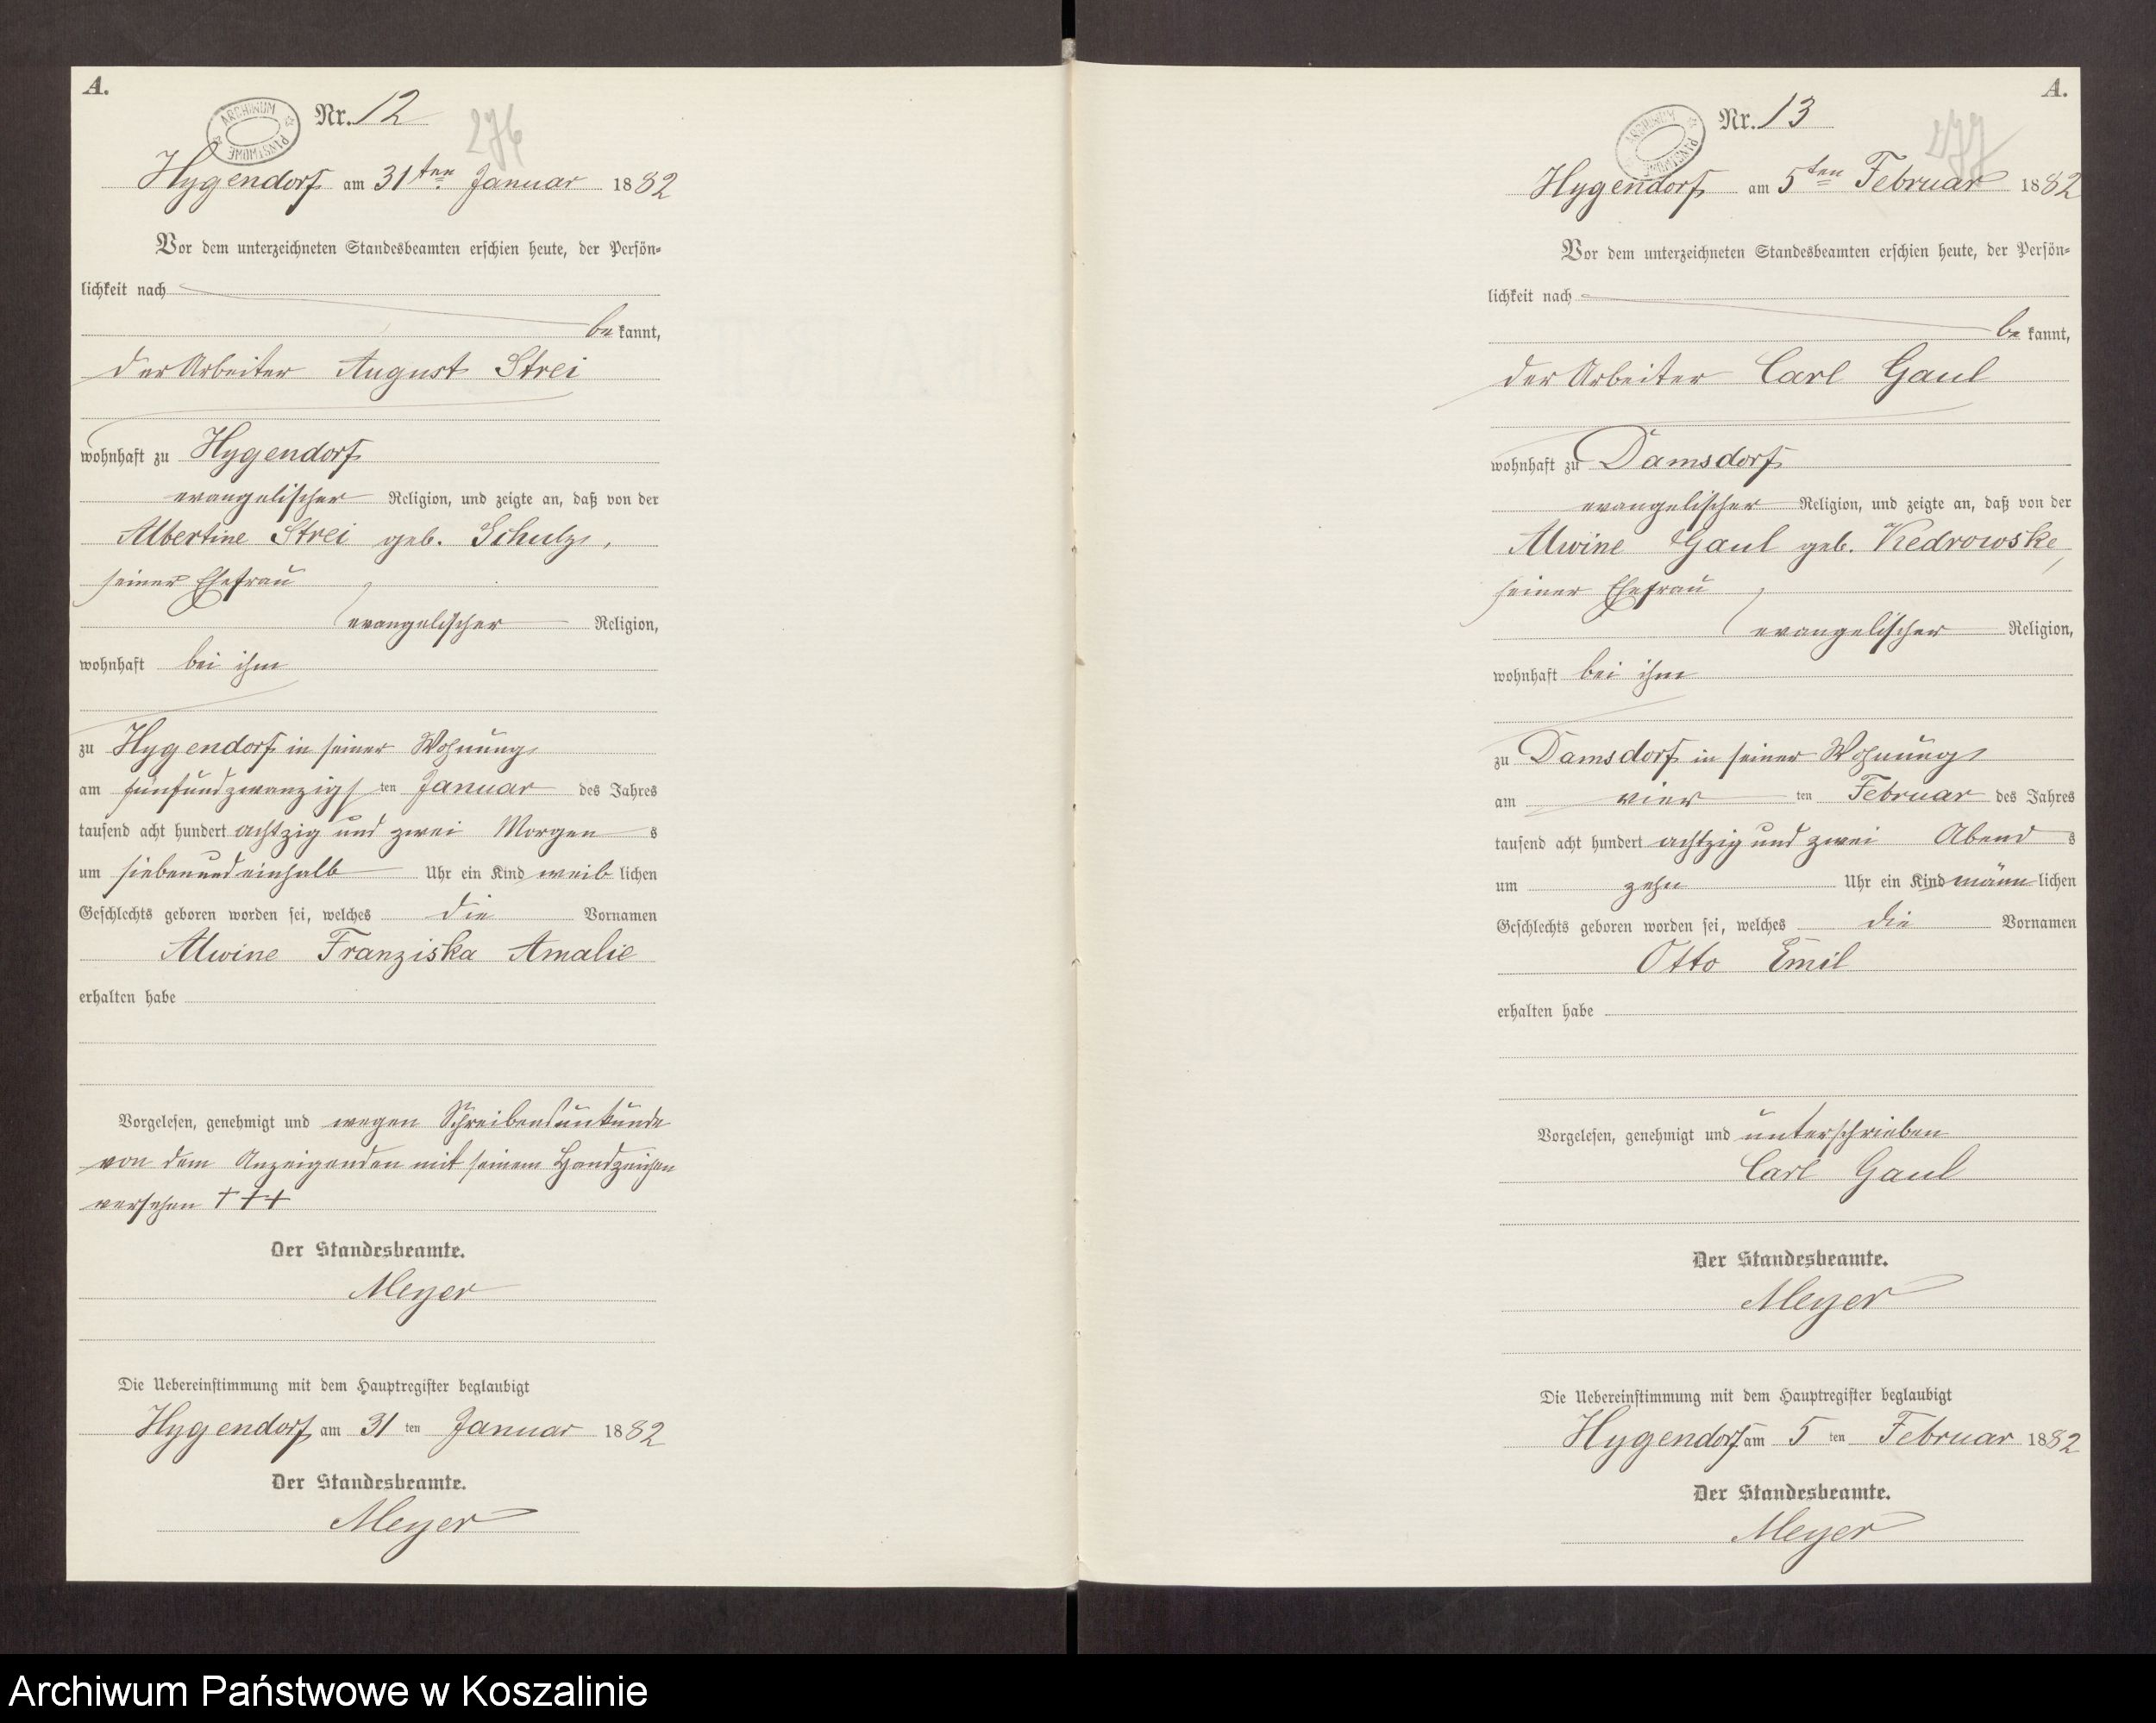 A.
ARCHIWUM PAŃSTWOWE
Nr. 12
276
Hygendorf am 31ten Januar 1882
Vor dem unterzeichneten Standesbeamten erschien heute, der Persön-
lichkeit nach
be kannt,
der Arbeiter August Strei
wohnhaft zu Hygendorf
evangelischer Religion, und zeigte an, daß von der
Albertine Strei geb. Schulz,
seiner Ehefrau
evangelischer Religion,
wohnhaft bei ihm
zu Hygendorf in seiner Wohnung
am fünfundzwanzigs ten Januar des Jahres
tausend acht hundert achtzig und zwei Morgen s
um siebenundeinhalb Uhr ein Kind weib lichen
Geschlechts geboren worden sei, welches die Vornamen
Alwine Franziska Amalie
erhalten habe
Vorgelesen, genehmigt und wegen Schreibensunkunde
von dem Anzeigenden mit seinem Handzeichen
versehen +++
Der Standesbeamte.
Meyer
Die Uebereinstimmung mit dem Hauptregister beglaubigt
Hygendorf am 31 ten Januar 1882
Der Standesbeamte.
Meyer
A.
ARCHIWUM PAŃSTWOWE
Nr. 13
277
Hygendorf am 5ten Februar 1882
Vor dem unterzeichneten Standesbeamten erschien heute, der Persön-
lichkeit nach
be kannt,
der Arbeiter Carl Gaul
wohnhaft zu Damsdorf
evangelischer Religion, und zeigte an, daß von der
Alwine Gaul geb. Kedrowske,
seiner Ehefrau
evangelischer Religion,
wohnhaft bei ihm
zu Damsdorf in seiner Wohnung
am vier ten Februar des Jahres
tausend acht hundert achtzig und zwei Abend s
um zehn Uhr ein Kind männ lichen
Geschlechts geboren worden sei, welches die Vornamen
Otto Emil
erhalten habe
Vorgelesen, genehmigt und unterschrieben
Carl Gaul
Der Standesbeamte.
Meyer
Die Uebereinstimmung mit dem Hauptregister beglaubigt
Hygendorf am 5 ten Februar 1882
Der Standesbeamte.
Meyer
Archiwum Państwowe w Koszalinie